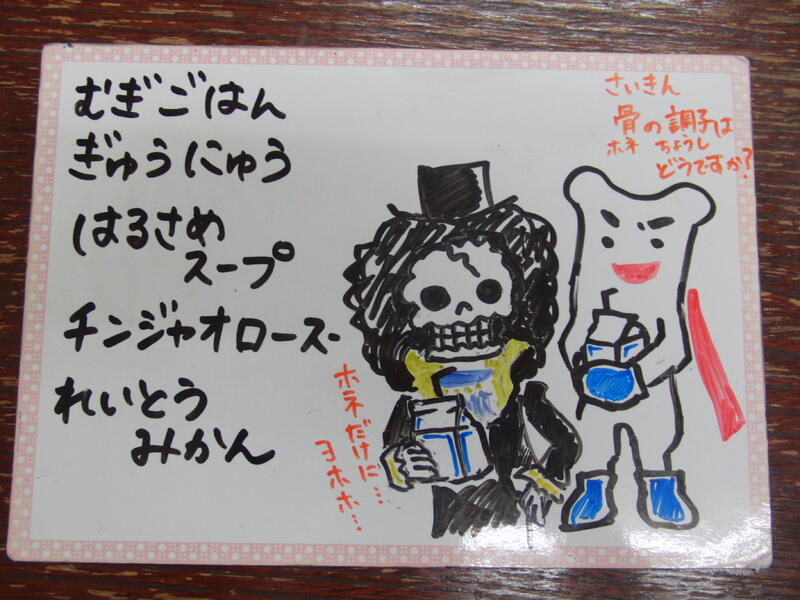 むぎごはん
ぎゅうにゅう
はるさめ
スープ
チンジャオロースー
れいとう
みかん
さいきん
骨の調子は
ホネ ちょうし
どうですか?
ホネだけに…
ヨホホ…